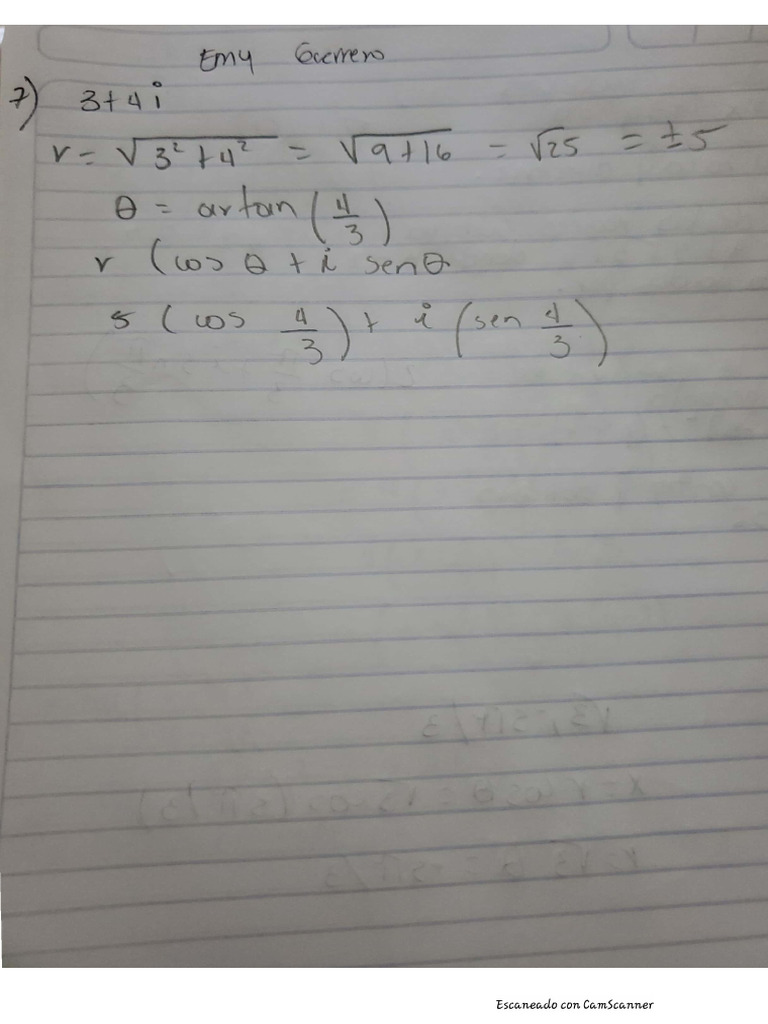 Emy Guerrero
7) 3+4i
r = √3²+4² = √9+16 = √25 = ±5
θ = artan (4/3)
r (cos θ + i senθ
5 (cos 4/3) + i (sen 4/3)
√3, 5π/3
x = r cos θ = √3 cos (5π/3)
Escaneado con CamScanner